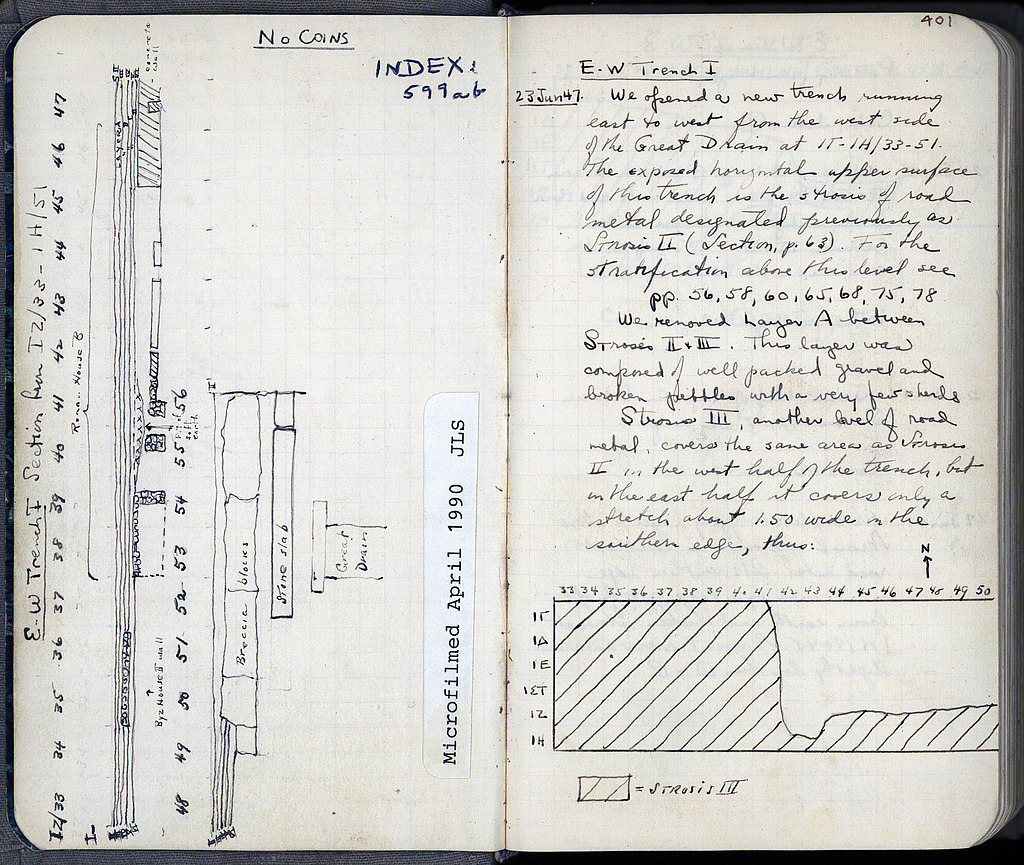 No COINS
INDEX:
599ab
E-W Trench I Section from IZ/33-1H/51
IZ/33 34 35 36 37 38 39 40 41 42 43 44 45 46 47
Roman House B
Layers
concrete wall
Byz House II wall
48 49 50 51 52 53 54 55 56
Breccia blocks
Stone slab
Great
Drain
Microfilmed April 1990 JLS
401
E-W Trench I
23 Jun 47. We opened a new trench running
east to west from the west side
of the Great Drain at 1T-1H/33-51.
The exposed horizontal upper surface
of this trench is the strosis of road
metal designated previously as
Strosis II (Section, p. 63). For the
stratification above this level see
pp. 56, 58, 60, 65, 68, 75, 78
We removed Layer A between
Strosis II + III. This layer was
composed of well packed gravel and
broken pebbles with a very few sherds
Strosis III, another level of road
metal, covers the same area as Strosis
II in the west half of the trench, but
in the east half it covers only a
stretch about 1.50 wide in the
southern edge, thus:
N
33 34 35 36 37 38 39 40 41 42 43 44 45 46 47 48 49 50
1Γ
1Δ
1E
1ΣT
1Z
1H
= STROSIS III